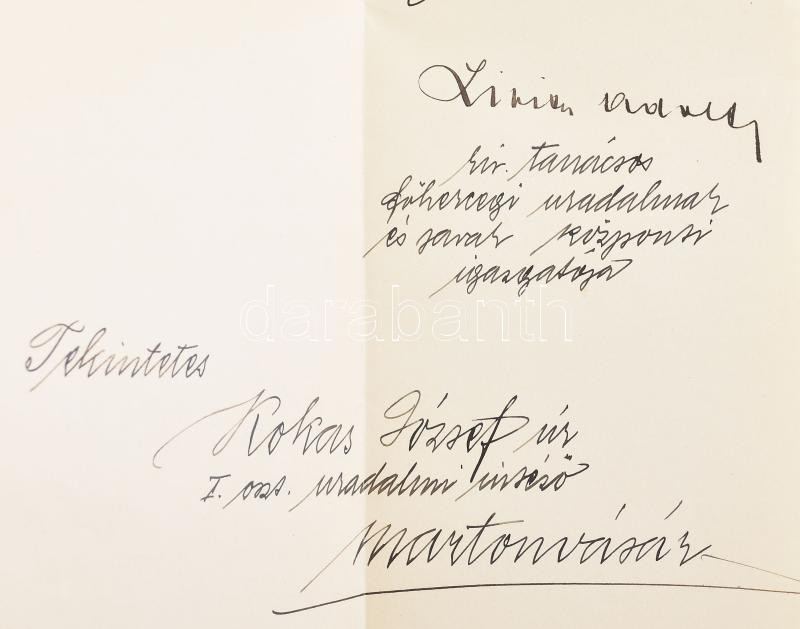 kir. tanácsos
főhercegi uradalmak
és javak központi
igazgatója
darabanth
Tekintetes
Kokas József úr
I. oszt. uradalmi intéző
Martonvásár